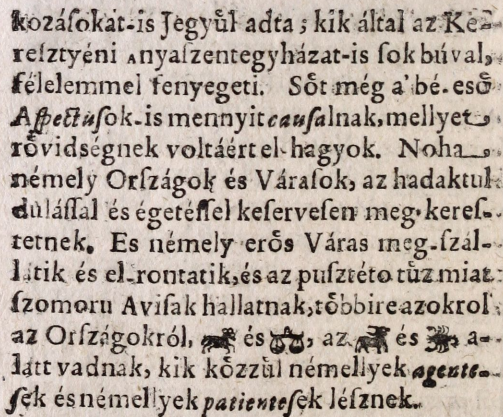 kozáſokat-is Jegyuͤl adta; kik által az Ke-
reſztyéni Anyaſzentegyházat-is ſok búval,
félelemmel fenyegeti. Soͤt még a' bé-esoͤ
Aſpectuſok-is mennyit cauſalnak, mellyet
roͤvidségnek voltáért el-hagyok. Noha
némely Orſzágok és Váraſok, az hadaktul
dulásſal és égetésſel keſerveſen meg-kereſ-
tetnek. Es némely eroͤs Váras meg-ſzál-
látik és el-rontatik, és az puſztéto tuͤz miat
ſzomoru Aviſak hallatnak, toͤbbire azokrol
az Orſzágokról, ♉ és ♎, az ♉ és ♏ a-
latt vadnak, kik koͤzzuͤl némellyek agente-
ſek és némellyek patienteſek léſznek.